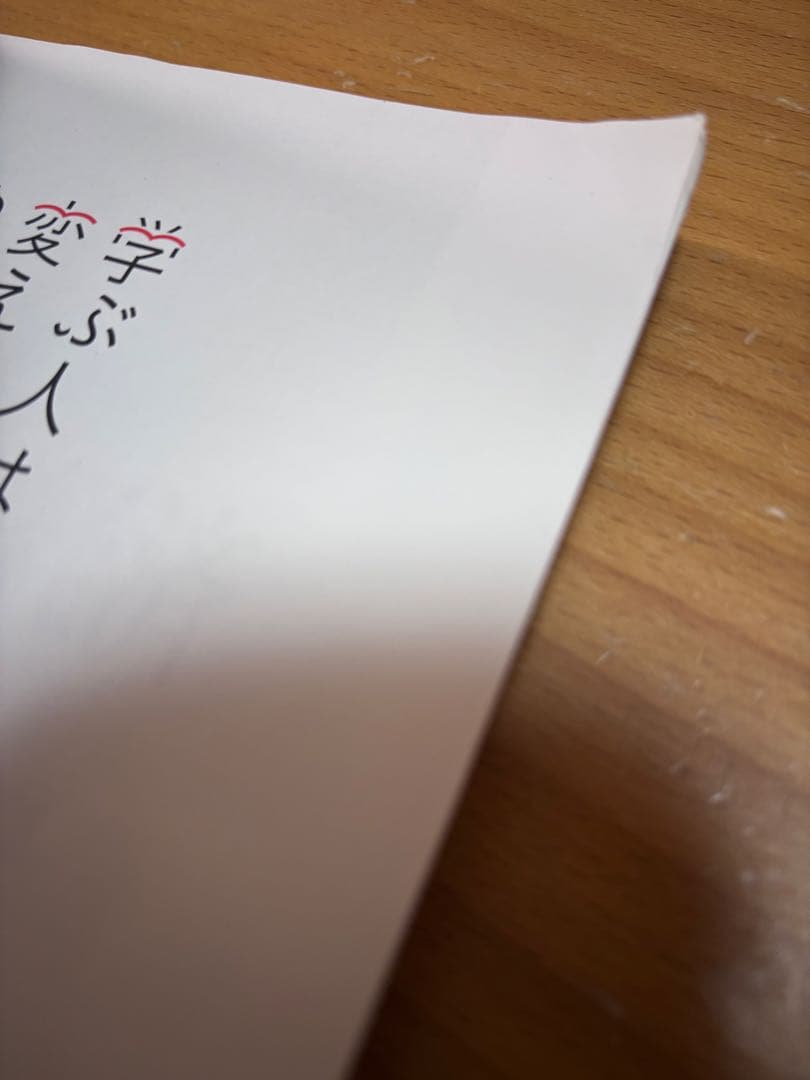 学ぶ人は
変え